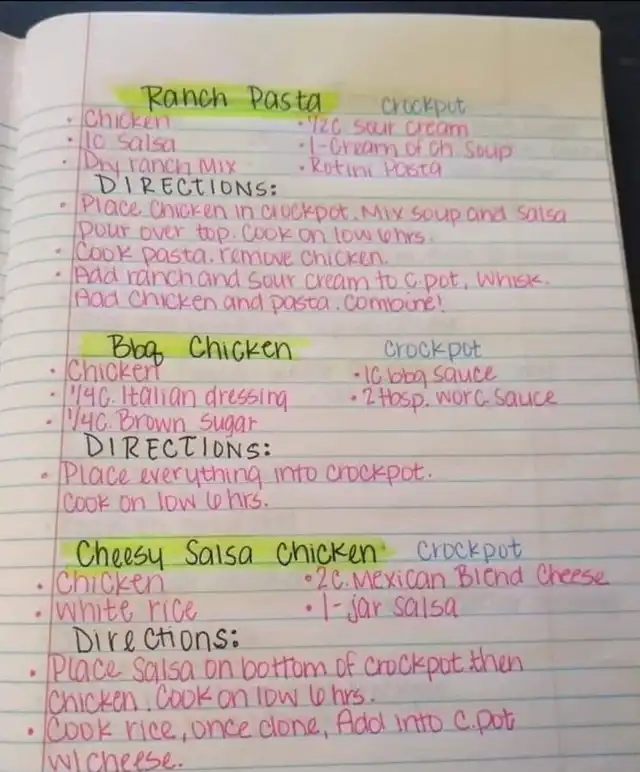 Ranch Pasta crockpot
• Chicken • 1/2c sour cream
• 1c salsa • 1-Cream of Ch Soup
• Dry ranch mix • Rotini Pasta
DIRECTIONS:
• Place chicken in crockpot. Mix soup and salsa
pour over top. Cook on low 6hrs.
• Cook pasta. remove chicken.
• Add ranch and sour cream to c.pot, whisk.
Add chicken and pasta. Combine!
Bbq Chicken crockpot
• Chicken • 1c bbq sauce
• 1/4c. Italian dressing • 2 tbsp. worc. sauce
• 1/4c. Brown sugar
DIRECTIONS:
• Place everything into crockpot.
Cook on low 6 hrs.
Cheesy Salsa Chicken crockpot
• Chicken • 2c. Mexican Blend Cheese
• White rice • 1-jar salsa
Directions:
• Place Salsa on bottom of crockpot then
chicken. Cook on low 6 hrs.
• Cook rice, once done, Add into c.pot
w/cheese.